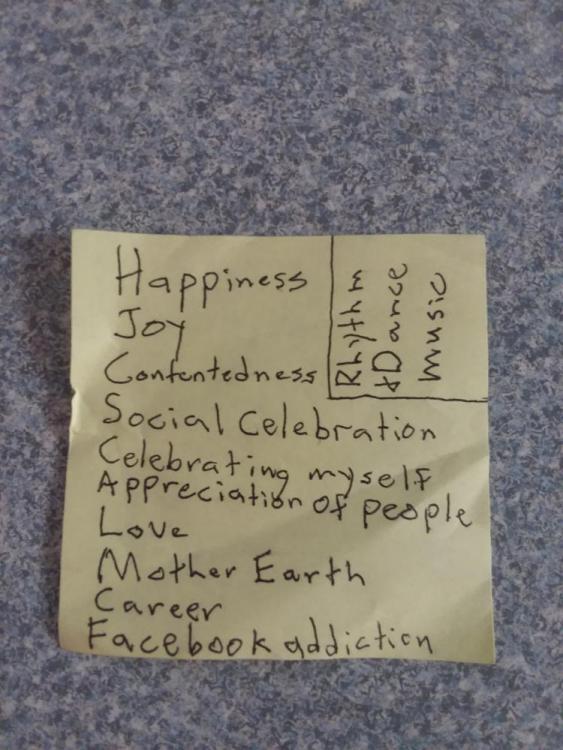 Happiness
Joy
Contentedness
Social Celebration
Celebrating myself
Appreciation of people
Love
Mother Earth
Career
Facebook addiction
Rhythm
& Dance
music